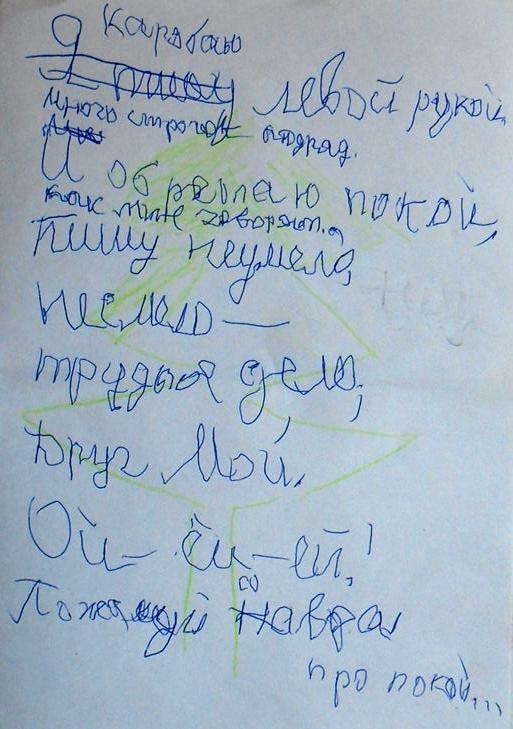 Карябаю
Я пишу левой рукой,
много строчек подряд.
И обретаю покой,
как мне говорят.
Пишу неумело,
несмело —
трудное дело,
Друг Мой.
Ой- ёй-ей!
Пожалуй соврал
про покой...